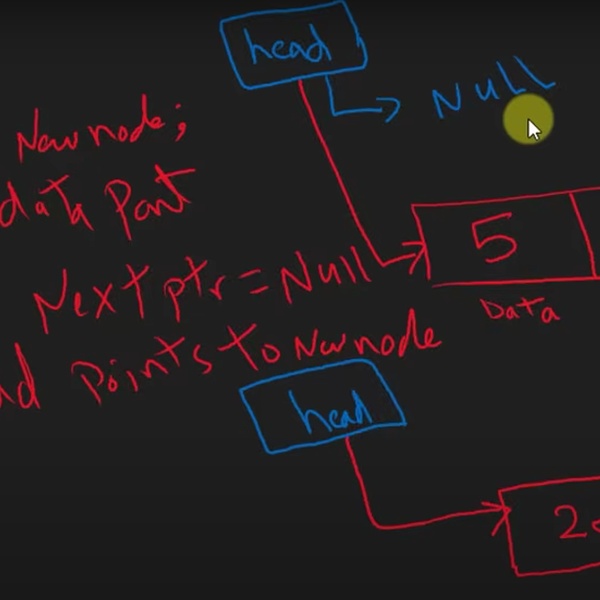 head
Null
New node;
data Part
5
Next ptr = Null
Data
Points to New node
head